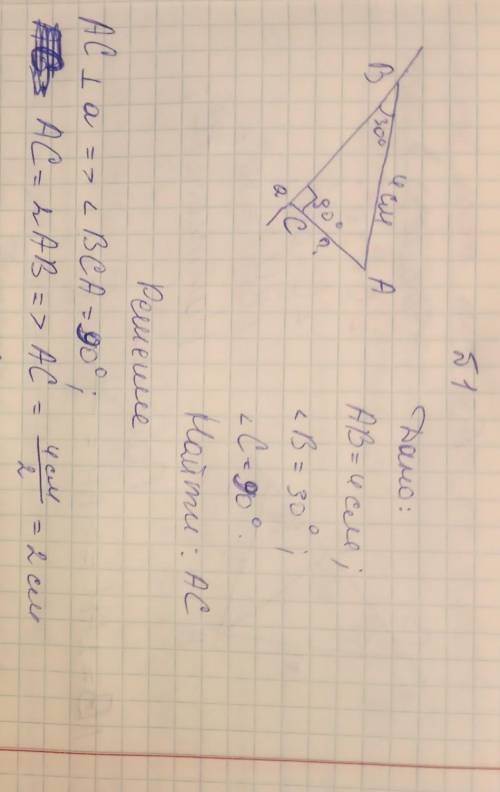 №1
Дано:
AB = 4 см;
∠B = 30°;
∠C = 90°.
Найти: AC
B
30°
4 см
A
90°
C
a
Решение
AC ⊥ a => ∠BCA = 90°;
AC = 2AB => AC = 4 см / 2 = 2 см